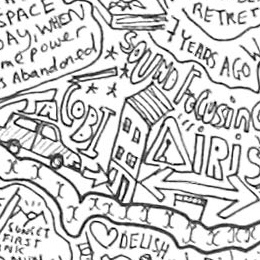 SPACE
DAY, WHEN
me power
is Abandoned
RETRE
7 YEARS AGO
SOUND FOCUSING
JACOBI
AIRIS
SUNSET
FIRST
INK
DELISH